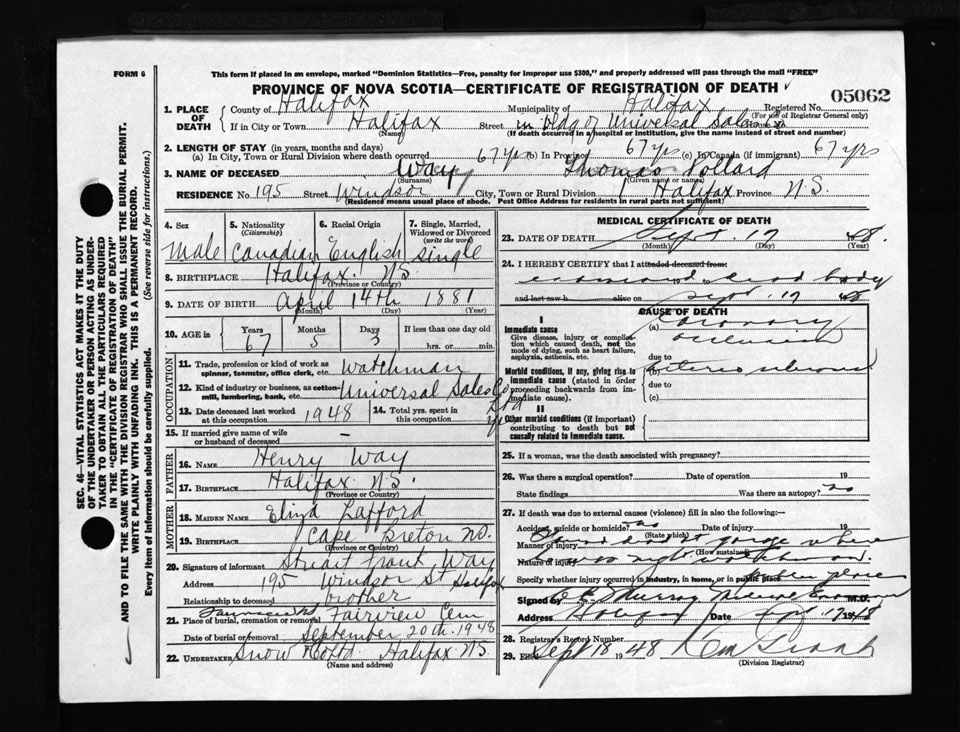 FORM 6
This form if placed in an envelope, marked "Dominion Statistics—Free, penalty for improper use $300," and properly addressed will pass through the mail "FREE"
PROVINCE OF NOVA SCOTIA—CERTIFICATE OF REGISTRATION OF DEATH
05062
1. PLACE OF DEATH
County of Halifax Municipality of Halifax Registered No.
(For use of Registrar General only)
If in City or Town Halifax Street in bldg of Universal Sales House No
(Name) (If death occurred in a hospital or institution, give the name instead of street and number)
2. LENGTH OF STAY (in years, months and days)
(a) In City, Town or Rural Division where death occurred 67 yrs (b) In Province 67 yrs (c) In Canada (if immigrant) 67 yrs
3. NAME OF DECEASED Way Thomas Pollard
(Surname) (Given name or names)
RESIDENCE No. 195 Street Windsor City, Town or Rural Division Halifax Province N.S.
(Residence means usual place of abode. Post Office Address for residents in rural parts not sufficient)
4. Sex 5. Nationality (Citizenship) 6. Racial Origin 7. Single, Married, Widowed or Divorced (write the word)
Male Canadian English Single
8. BIRTHPLACE Halifax N.S.
(Province or Country)
9. DATE OF BIRTH April 14th 1881
(Month) (Day) (Year)
10. AGE in Years Months Days If less than one day old
67 5 3 hrs. or min.
OCCUPATION
11. Trade, profession or kind of work as spinner, teamster, office clerk, etc. Watchman
12. Kind of industry or business, as cotton-mill, lumbering, bank, etc. Universal Sales Co Ltd
13. Date deceased last worked at this occupation 1948 14. Total yrs. spent in this occupation
15. If married give name of wife or husband of deceased —
FATHER
16. NAME Henry Way
17. BIRTHPLACE Halifax N.S.
(Province or Country)
MOTHER
18. MAIDEN NAME Eliza Lafford
19. BIRTHPLACE Cape Breton N.S.
(Province or Country)
20. Signature of informant Stuart Grant Way
Address 195 Windsor St Halifax
Relationship to deceased brother
21. Place of burial, cremation or removal Fairview Cem
Date of burial or removal September 20th 1948
22. UNDERTAKER Snow & Co Ltd Halifax N.S.
(Name and address)
MEDICAL CERTIFICATE OF DEATH
23. DATE OF DEATH Sept. 17 48.
(Month) (Day) (Year)
24. I HEREBY CERTIFY that I attended deceased from:
examined dead body
and last saw h alive on Sept. 17 48
CAUSE OF DEATH
I
Immediate cause (a) Coronary occlusion
Give disease, injury or complication which caused death, not the mode of dying, such as heart failure, asphyxia, asthenia, etc.
due to
Morbid conditions, if any, giving rise to immediate cause (stated in order proceeding backwards from immediate cause).
(b)
due to
(c)
II
Other morbid conditions (if important) contributing to death but not causally related to immediate cause.
25. If a woman, was the death associated with pregnancy?
26. Was there a surgical operation? Date of operation 19
State findings Was there an autopsy? no
27. If death was due to external causes (violence) fill in also the following:
Accident, suicide or homicide? no Date of injury 19
(State which)
Manner of injury Found dead at garage where
(How sustained)
Nature of injury he was night watchman.
Specify whether injury occurred in industry, in home, or in public place
Signed by Murray Medical Examiner M.D.
Address Halifax Date Sept 17 1948
28. Registrar's Record Number
29. Filed Sept 18 1948
(Division Registrar)
SEC. 46—VITAL STATISTICS ACT MAKES IT THE DUTY OF THE UNDERTAKER OR PERSON ACTING AS UNDERTAKER TO OBTAIN ALL THE PARTICULARS REQUIRED IN THE "CERTIFICATE OF REGISTRATION OF DEATH"
AND TO FILE THE SAME WITH THE DIVISION REGISTRAR WHO SHALL ISSUE THE BURIAL PERMIT.
WRITE PLAINLY WITH UNFADING INK. THIS IS A PERMANENT RECORD.
Every item of information should be carefully supplied. (See reverse side for instructions.)